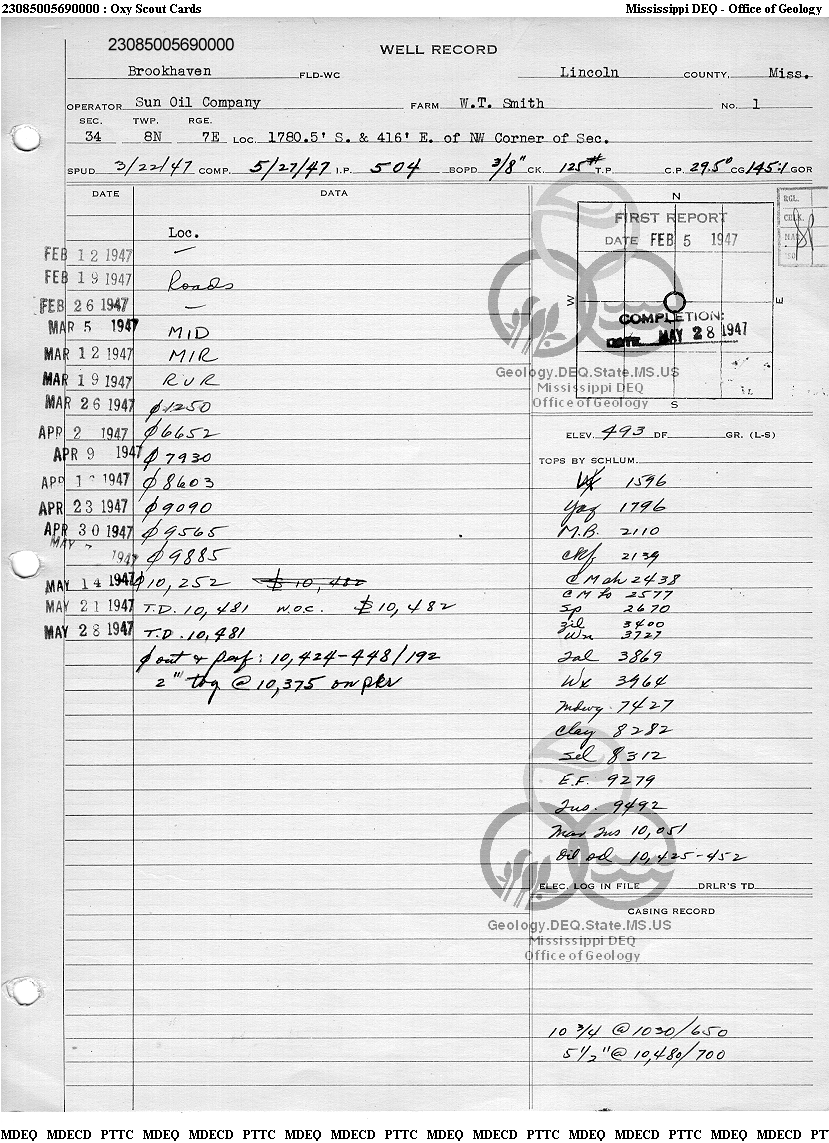 23085005690000 : Oxy Scout Cards Mississippi DEQ - Office of Geology
23085005690000
WELL RECORD
Brookhaven FLD-WC Lincoln COUNTY, Miss.
OPERATOR Sun Oil Company FARM W.T. Smith NO. 1
SEC. TWP. RGE.
34 8N 7E LOC. 1780.5' S. & 416' E. of NW Corner of Sec.
SPUD 3/22/47 COMP. 5/27/47 I.P. 504 BOPD 3/8" CK. 125# T.P. C.P. 29.5° CG 145:1 GOR
DATE DATA
Loc.
FEB 12 1947 —
FEB 19 1947 Roads
FEB 26 1947 —
MAR 5 1947 MID
MAR 12 1947 MIR
MAR 19 1947 RUR
MAR 26 1947 ϕ 1250
APR 2 1947 ϕ 6652
APR 9 1947 ϕ 7930
APR 1 1947 ϕ 8603
APR 23 1947 ϕ 9090
APR 30 1947 ϕ 9565
MAY 7 1947 ϕ 9885
MAY 14 1947 ϕ 10,252 $ 10,482
MAY 21 1947 T.D. 10,481 W.O.C. $ 10,482
MAY 28 1947 T.D. 10,481
ϕ out & perf: 10,424-448/192
2" tbg @ 10,375 on pkr
N
FIRST REPORT
DATE FEB 5 1947
W E
COMPLETION:
DATE MAY 28 1947
S
RGL.
CHK.
Geology.DEQ.State.MS.US
Mississippi DEQ
Office of Geology
ELEV. 493 DF GR. (L-S)
TOPS BY SCHLUM.
1596
Yaz 1796
M.B. 2110
Ckf 2139
C Mah 2438
C M Lo 2577
Sp 2670
Zil 3400
Wn 3727
Tal 3869
Wx 3964
Mdwy. 7427
Clay 8282
Sel 8312
E.F. 9279
Tus. 9492
Mar Tus 10,051
Oil sd 10,425-452
ELEC. LOG IN FILE DRLR'S TD
CASING RECORD
Geology.DEQ.State.MS.US
Mississippi DEQ
Office of Geology
10 3/4 @ 1030/650
5 1/2" @ 10,480/700
MDEQ MDECD PTTC MDEQ MDECD PTTC MDEQ MDECD PTTC MDEQ MDECD PTTC MDEQ MDECD PTTC MDEQ MDECD PT